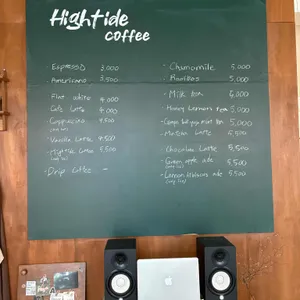 Hightide
coffee
· Espresso 3,000
· Americano 3,500
· Flat white 4,000
· Cafe Latte 4,000
· Cappuccino 4,500
· Vanilla Latte 4,500
· Hightide Latte 5,500
· Drip Coffee –
· Chamomile 5,000
· Rooibos 5,000
· Milk tea 5,000
· Honey Lemon tea 5,000
mint tea 5,000
· Matcha Latte 5,500
· Chocolate Latte 5,500
· Green apple ade 5,500
· Lemon hibiscus ade 5,500